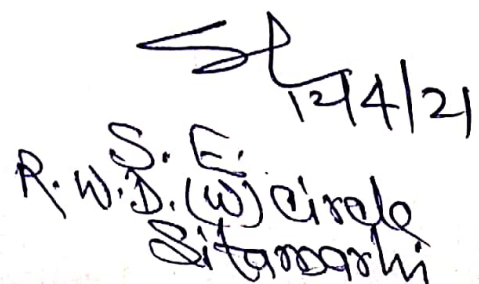 12/4/21
S. E.
R. W. D. (W) Circle
Sitamarhi